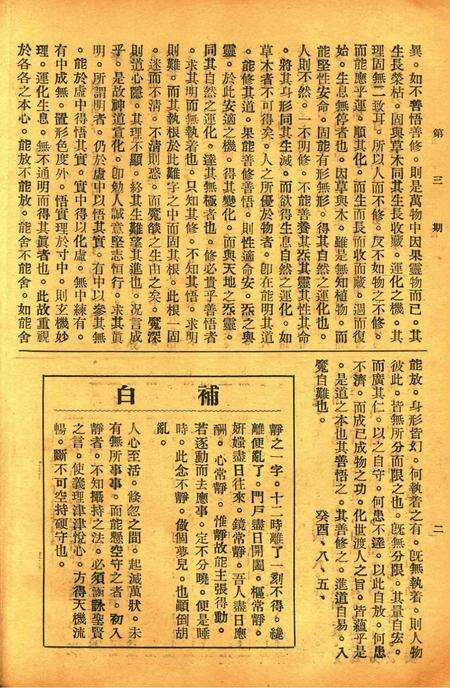 第三期
異。如不善悟善修。則是萬物中因果靈物而已。其
生長榮枯。固與草木同其生長收藏。運化之機。其
理固無二致耳。所以人而不修。反不如物之不修。
而能應乎運。順其化。而生而長而收而藏。週而復
始。生息無停者也。因草與木。雖是無知植物。而
能堅性安命。固能有形無形。得其自然之運化也。
人則不然。一不明修。不能善養其炁其靈其性其命
。將其身形同其生滅。而欲得生息自然之運化。如
草木者不可得矣。人之所優於物者。卽在能明其道
。能修其道。果能善修善悟。則性適命安。炁之與
靈。於此安適之機。得其變化。而與天地之炁靈。
同其自然之運化。達其無極者也。修必貴乎善悟者
。求其明而無執着也。只知其修。不知其悟。求明
則難。而其執根於此難字之中而固其根。此根一固
。迷而不清。不清則惑。而魔燄之生由之矣。魔深
則道心離。其理不顯。終其生難望其進也。況言成
乎。是故神道宣化。卽勉人誠意堅志恒行。求其眞
明。所謂明者。仍於虛中以悟其實。有中以參其無
。能於虛中得悟其實。實中得以化虛。無中練有。
有中成無。置形色度外。悟實理於寸中。則玄機妙
理。運化生息。無不通明而得其眞者也。此故重視
於各各之本心。能放不能放。能舍不能舍。如能舍
二
能放。身形皆幻。何執着之有。旣無執着。則人物
彼此。皆無所分而限之也。旣無分限。其量自宏。
而廣其仁。以之自守。何患不達。以此自放。何患
不濟。而成已成物之功。化世渡人之旨。皆蘊乎是
。是道之本也其善悟之。其善修之。進道自易。入
魔自難也。　　癸酉、八、五、
補白
靜之一字。十二時離了一刻不得。纔
離便亂了。門戶盡日開闔。樞常靜。
妍媸盡日往來。鏡常靜。吾人盡日應
酬。心常靜。惟靜故能主張得動。
若逐動而去應事。定不分曉。便是睡
時。此念不靜。做個夢兒。也顚倒胡
亂。
人心至活。倏忽之間。起滅萬狀。未
有無所事事。而能懸空守之者。初入
靜者。不知攝持之法。必須諷詠聖賢
之言。使義理津津悅心。方得天機流
暢。斷不可空持硬守也。